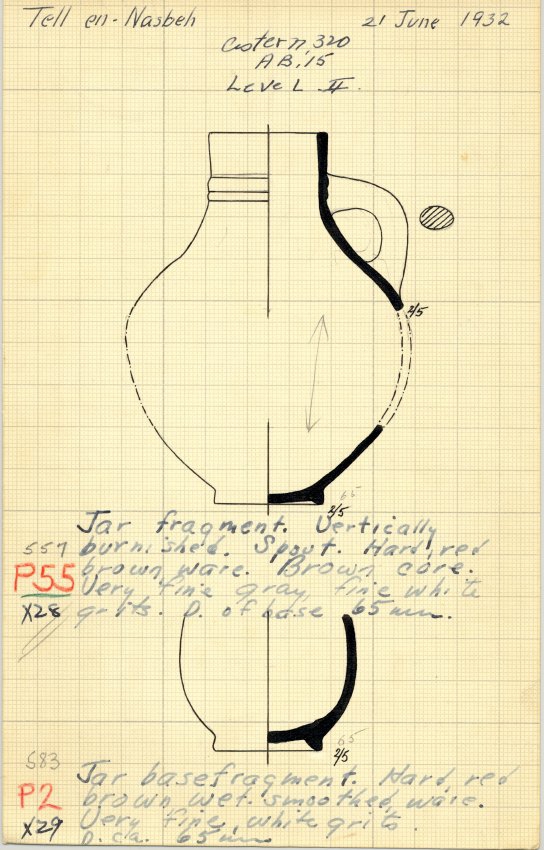 Tell en-Nasbeh 21 June 1932
Cistern, 320
AB, 15
Level II.
2/5
65
2/5
Jar fragment. Vertically
557 burnished. Spout. Hard, red
P55 brown ware. Brown core.
Very fine gray, fine white
X28 grits. D. of base 65 mm.
65
2/5
583 Jar base fragment. Hard, red
P2 brown wet-smoothed ware.
X29 Very fine, white grits.
D. ca. 65 mm